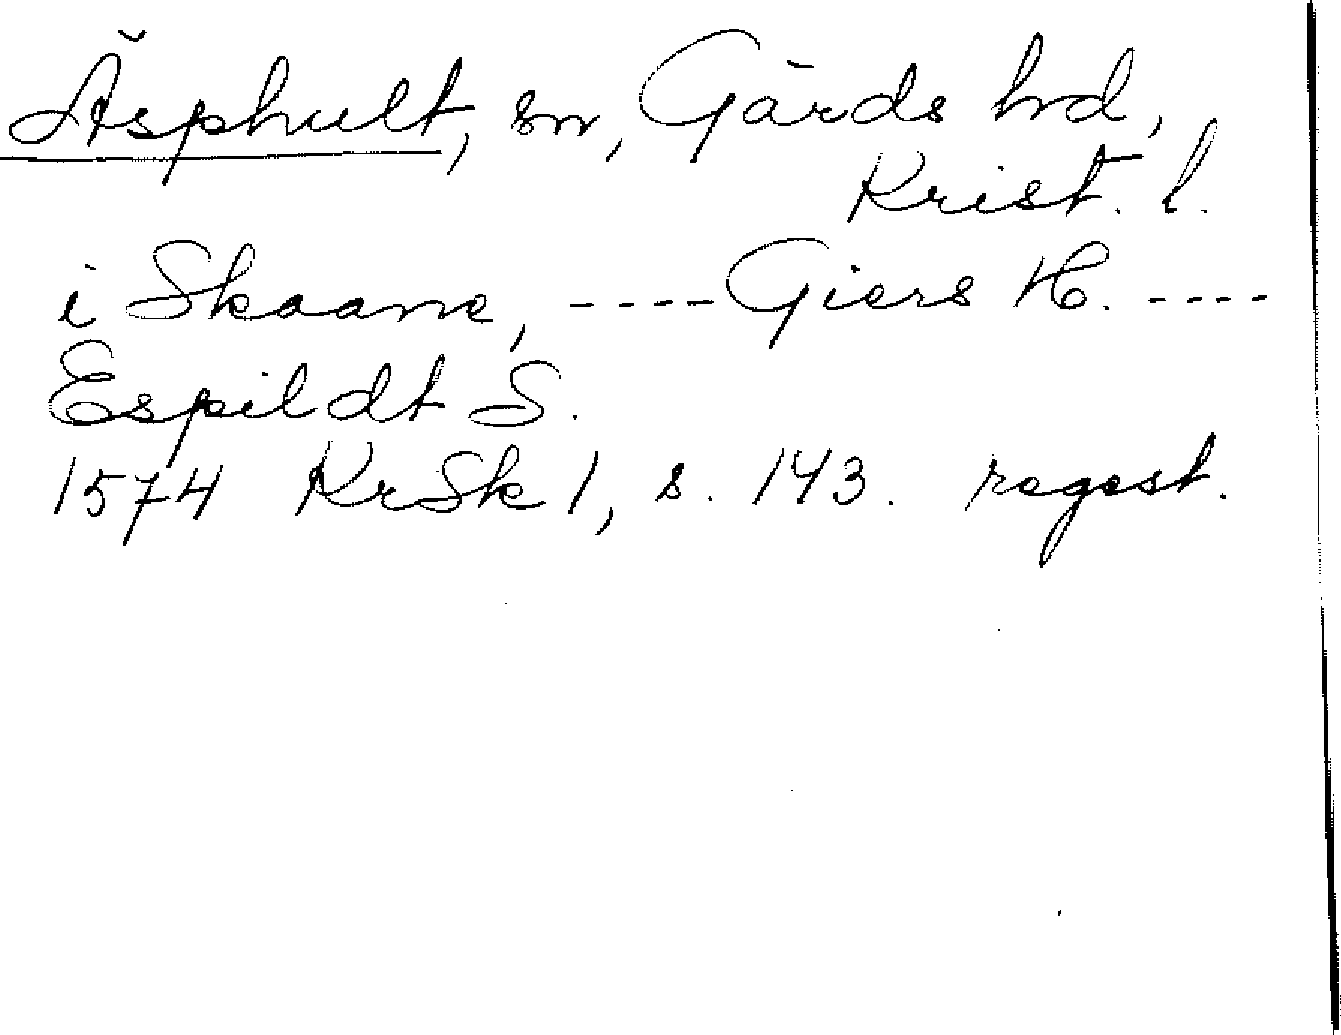 Äsphult, sn, Gärds hd,
Krist. l.
i Skaane, ---- Giers H. ----
Espildt S.
1574 KrSk 1, s. 143. regest.